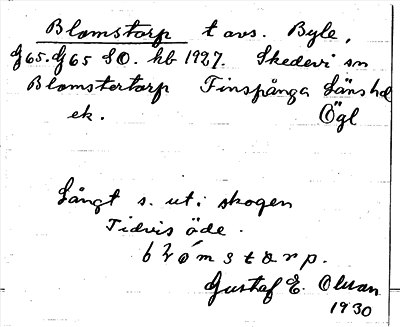 Blomstorp t avs. Byle,
G65.G65 SO. kb 1927. Skedevi sn
Blomstertorp Finspånga Länshd
ek. Ögl
Långt s. ut i skogen
Tidvis öde.
blómstørp.
Gustaf E. Olsson
1930